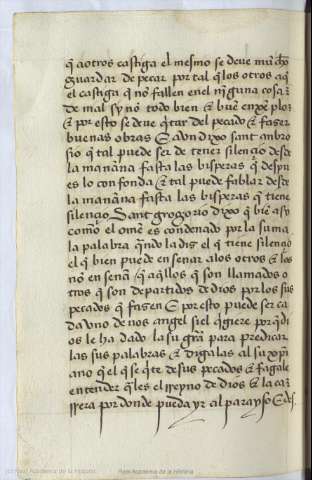 q̃ a otros castiga el mesmo se deve mucho
guardar de pecar por tal q̃ los otros a q̃
el castiga q̃ no fallen en el ninguna cosa
de mal sy no todo bien & buẽ enxẽplo
& por esto se deve q̃tar del pecado & faser
buenas obras E aun dixo sant anbro
sio q̃ tal puede ser de tener silençio desde
la mañana fasta las bisperas q̃ despu
es lo confonda & tal puede fablar desde
la mañana fasta las bisperas q̃ tiene
silençio Sant grogorio dixo q̃ biẽ asy
como el ome es condenado por la suma
la palabra q̃ndo la dis el q̃ tiene silençio
el q̃ bien puede enseñar a los otros & los
no enseña q̃ aq̃llos q̃ son llamados o
tros q̃ son departidos de dios por los sus
pecados q̃ fasen E por esto puede ser ca
da uno de nos angel si el q̃siere por q̃ di
os le ha dado la su grã para predicar
las sus palabras & digalas al su xp̃ri
ano q̃ el q̃ se q̃te de sus pecados & fagale
entender q̃l es el rreyno de dios & la ca
rrera por donde pueda yr al parayso E des
Real Academia de la Historia